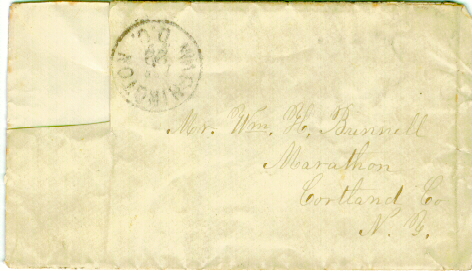 WASHINGTON D.C.
Mr. Wm. H. Bunnell
Marathon
Cortland Co
N. Y.